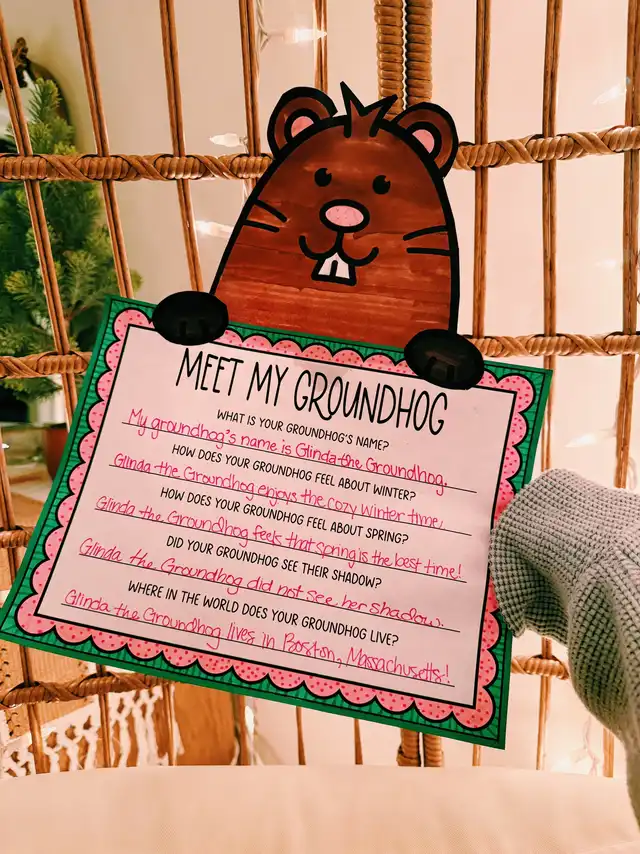 MEET MY GROUNDHOG
WHAT IS YOUR GROUNDHOG'S NAME?
My groundhog's name is Glinda the Groundhog.
HOW DOES YOUR GROUNDHOG FEEL ABOUT WINTER?
Glinda the Groundhog enjoys the cozy winter time.
HOW DOES YOUR GROUNDHOG FEEL ABOUT SPRING?
Glinda the Groundhog feels that spring is the best time!
DID YOUR GROUNDHOG SEE THEIR SHADOW?
Glinda the Groundhog did not see her shadow.
WHERE IN THE WORLD DOES YOUR GROUNDHOG LIVE?
Glinda the Groundhog lives in Boston, Massachusetts!